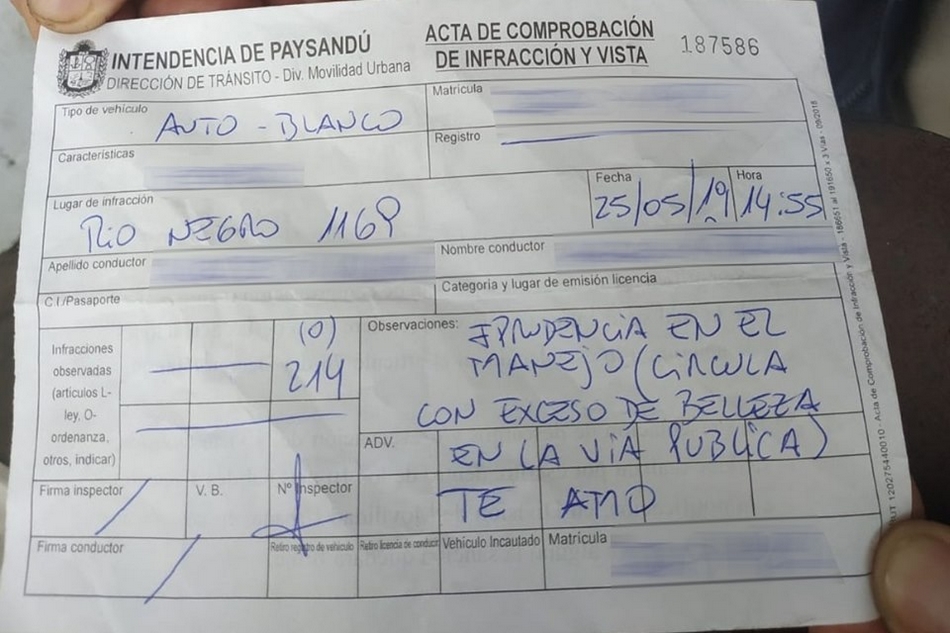 INTENDENCIA DE PAYSANDÚ
DIRECCIÓN DE TRÁNSITO - Div. Movilidad Urbana
ACTA DE COMPROBACIÓN
DE INFRACCIÓN Y VISTA
187586
Tipo de vehículo
AUTO - BLANCO
Matrícula
Registro
Características
Lugar de infracción
RIO NEGRO 1169
Fecha
25/05/19
Hora
14:55
Apellido conductor
Nombre conductor
C.I./Pasaporte
Categoria y lugar de emisión licencia
Infracciones
observadas
(articulos L-
ley, O-
ordenanza,
otros, indicar)
(O)
214
Observaciones:
IPRUDENCIA EN EL
MANEJO (CIRCULA
CON EXCESO DE BELLEZA
EN LA VIA PUBLICA)
TE AMO
ADV.
Firma inspector
V. B.
Nº Inspector
Firma conductor
Retiro registro de vehículo
Retiro licencia de conducir
Vehículo Incautado
Matricula
RUT 120275440010 - Acta de Comprobación de Infracción y Vista - 186651 al 191650 x 3 Vías - 09/2018